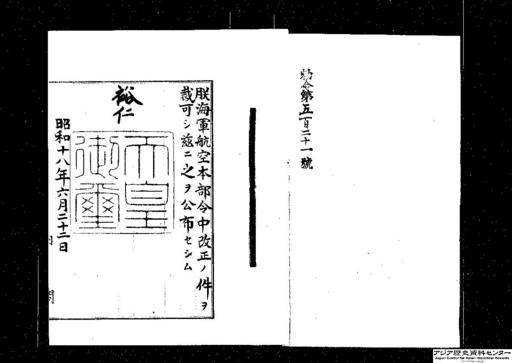 勅令第五百二十一號
朕海軍航空本部令中改正ノ件ヲ
裁可シ茲ニ之ヲ公布セシム
裕仁
天皇御璽
昭和十八年六月二十二日
アジア歴史資料センター
Japan Center for Asian Historical Records